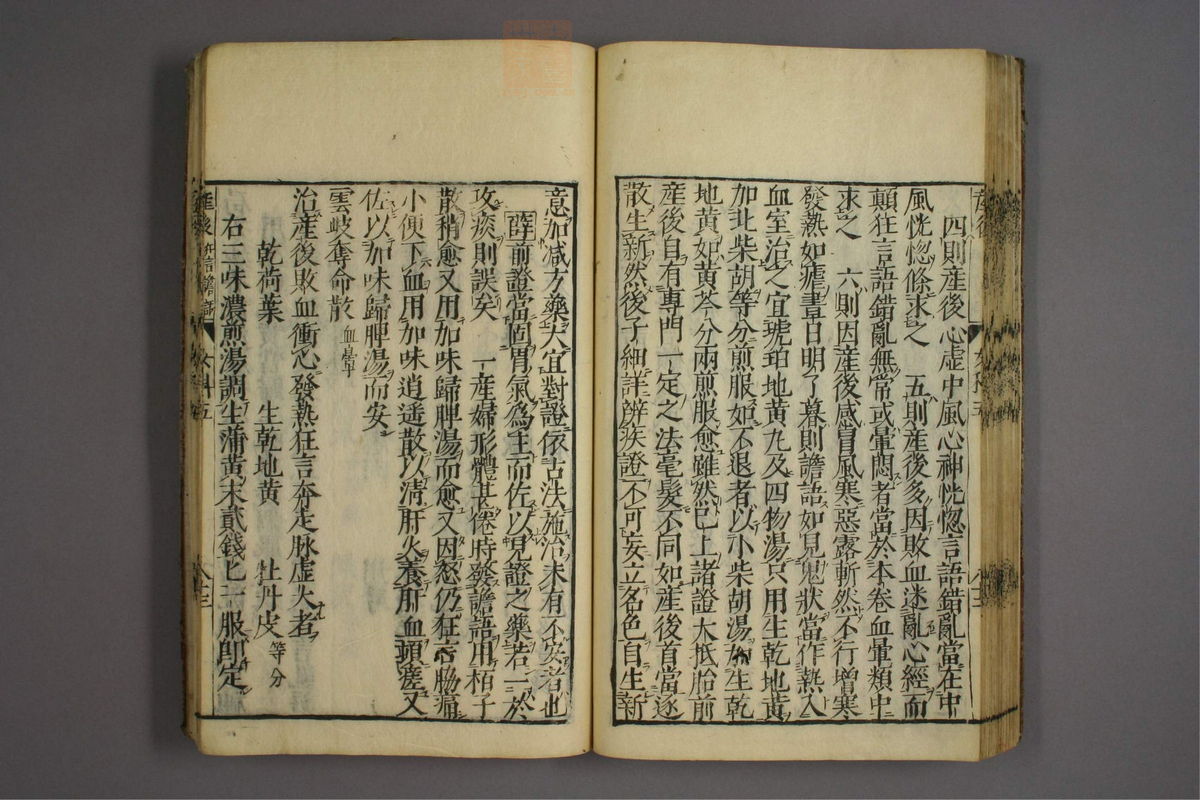 四則產後心虛中風心神恍惚言語錯亂當在中
風恍惚條求之　五則產後多因敗血迷亂心經而
顛狂言語錯亂無常或暈悶者當於本卷血暈類中
求之　六則因產後感冒風寒惡露斬然不行增寒
發熱如瘧晝日明了暮則譫語如見鬼狀當作熱入
血室治之宜琥珀地黃丸及四物湯只用生乾地黃
加北柴胡等分煎服如不退者以小柴胡湯加生乾
地黃如黃芩分兩煎服愈雖然已上諸證大抵胎前
產後自有專門一定之法毫髮不同如產後首當逐
散生新然後子細詳辨疾證不可妄立名色自生新
意加減方藥大宜對證依古法施治未有不安者也
薛前證當固胃氣為主而佐以見證之藥若一於
攻痰則誤矣　一產婦形體甚倦時發譫語用栢子
散稍愈又用加味歸脾湯而愈又因怒仍狂言脇痛
小便下血用加味逍遙散以清肝火養肝血頓瘥又
佐以加味歸脾湯而安
雲岐奪命散
治產後敗血衝心發熱狂言奔走脉虛大者
乾荷葉　生乾地黃　牡丹皮等分
右三味濃煎湯調生蒲黃末貳錢匕一服即定
產後　女科五